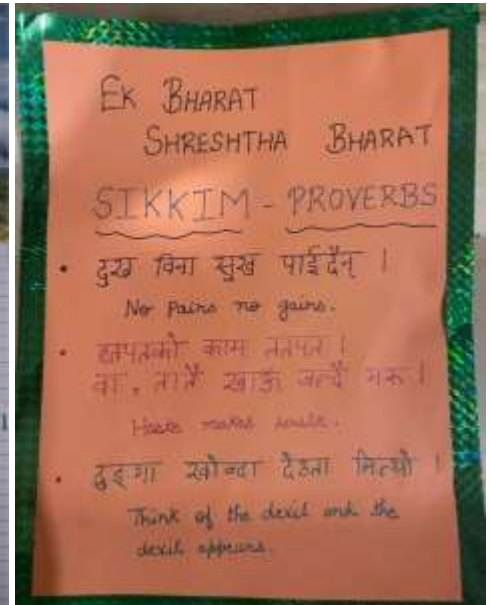 EK BHARAT
SHRESHTHA BHARAT
SIKKIM - PROVERBS
• दुख विना सुख पाईदैन् ।
No Pains no gains.
• हतपतको काम लतपत ।
वा, तातै खाऊँ जल्दै मरूँ ।
Haste makes waste.
• ढुङ्गा खोज्दा देउता मिल्यो ।
Think of the devil and the
devil appears.